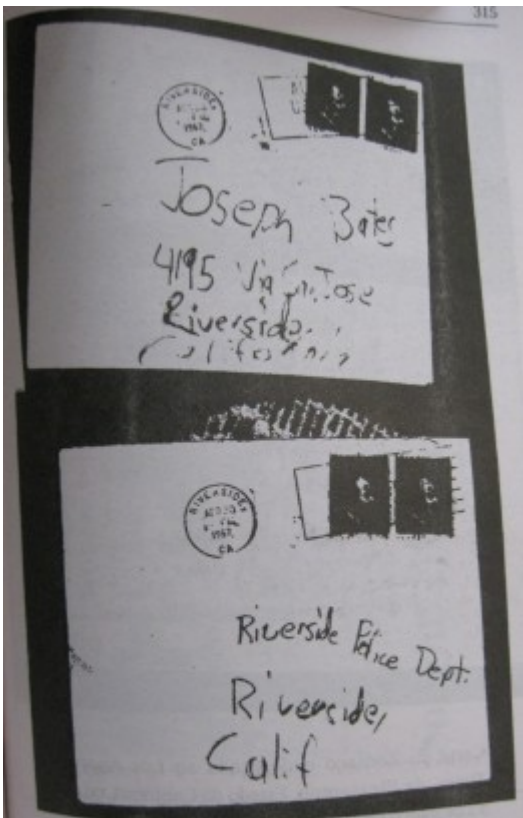 315
RIVERSIDE
1967
CA
Joseph Bates
4195 Via San Jose
Riverside,
California
RIVERSIDE
APR 30
1967
CA
Riverside Police Dept.
Riverside,
Calif